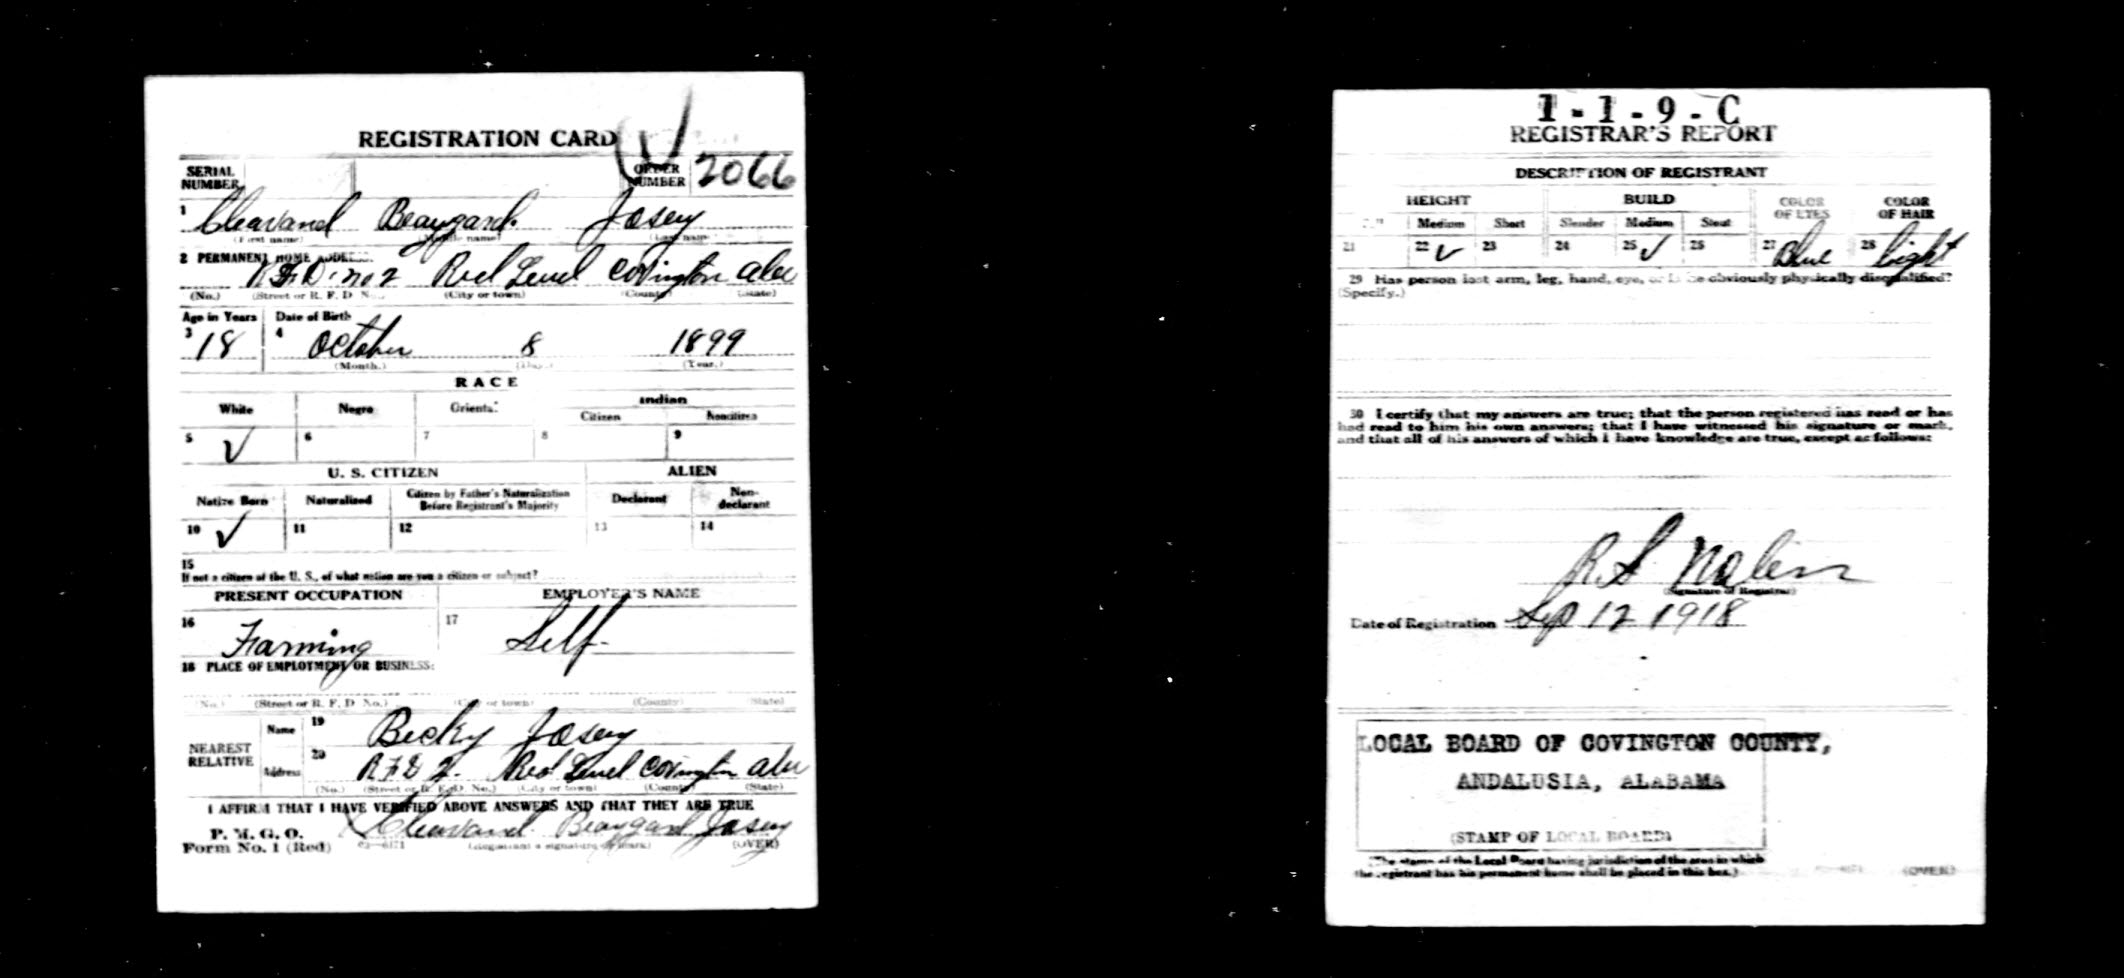 REGISTRATION CARD
SERIAL NUMBER
ORDER NUMBER 2066
1 Cleavand Beaugard Josey
(First name) (Middle name) (Last name)
2 PERMANENT HOME ADDRESS:
R.F.D. no 2 Red Level Covington ala
(No.) (Street or R. F. D. No.) (City or town) (County) (State)
Age in Years Date of Birth
3 18 4 October 8 1899
(Month.) (Day.) (Year.)
RACE
White Negro Oriental Indian
Citizen Noncitizen
5 ✓ 6 7 8 9
U. S. CITIZEN ALIEN
Native Born Naturalized Citizen by Father's Naturalization Before Registrant's Majority Declarant Non-declarant
10 ✓ 11 12 13 14
15
If not a citizen of the U. S., of what nation are you a citizen or subject?
PRESENT OCCUPATION EMPLOYER'S NAME
16 Farming 17 Self-
18 PLACE OF EMPLOYMENT OR BUSINESS:
(No.) (Street or R. F. D. No.) (City or town) (County) (State)
NEAREST RELATIVE
Name 19 Becky Josey
Address 20 R F D 2. Red Level Covington ala
(No.) (Street or R. F. D. No.) (City or town) (County) (State)
I AFFIRM THAT I HAVE VERIFIED ABOVE ANSWERS AND THAT THEY ARE TRUE
P. M. G. O.
Form No. 1 (Red) Cleavand Beaugard Josey
03—6171 (Registrant's signature or mark) (OVER)
1-1-9-C
REGISTRAR'S REPORT
DESCRIPTION OF REGISTRANT
HEIGHT BUILD COLOR OF EYES COLOR OF HAIR
Medium Short Slender Medium Stout
21 22 ✓ 23 24 25 ✓ 26 27 Blue 28 Light
29 Has person lost arm, leg, hand, eye, or is he obviously physically disqualified?
(Specify.)
30 I certify that my answers are true; that the person registered has read or has
had read to him his own answers; that I have witnessed his signature or mark,
and that all of his answers of which I have knowledge are true, except as follows:
R. S. Nolen
(Signature of Registrar)
Date of Registration Sep 12 1918
LOCAL BOARD OF COVINGTON COUNTY,
ANDALUSIA, ALABAMA
(STAMP OF LOCAL BOARD)
(The stamp of the Local Board having jurisdiction of the area in which
the registrant has his permanent home shall be placed in this box.)
(OVER)